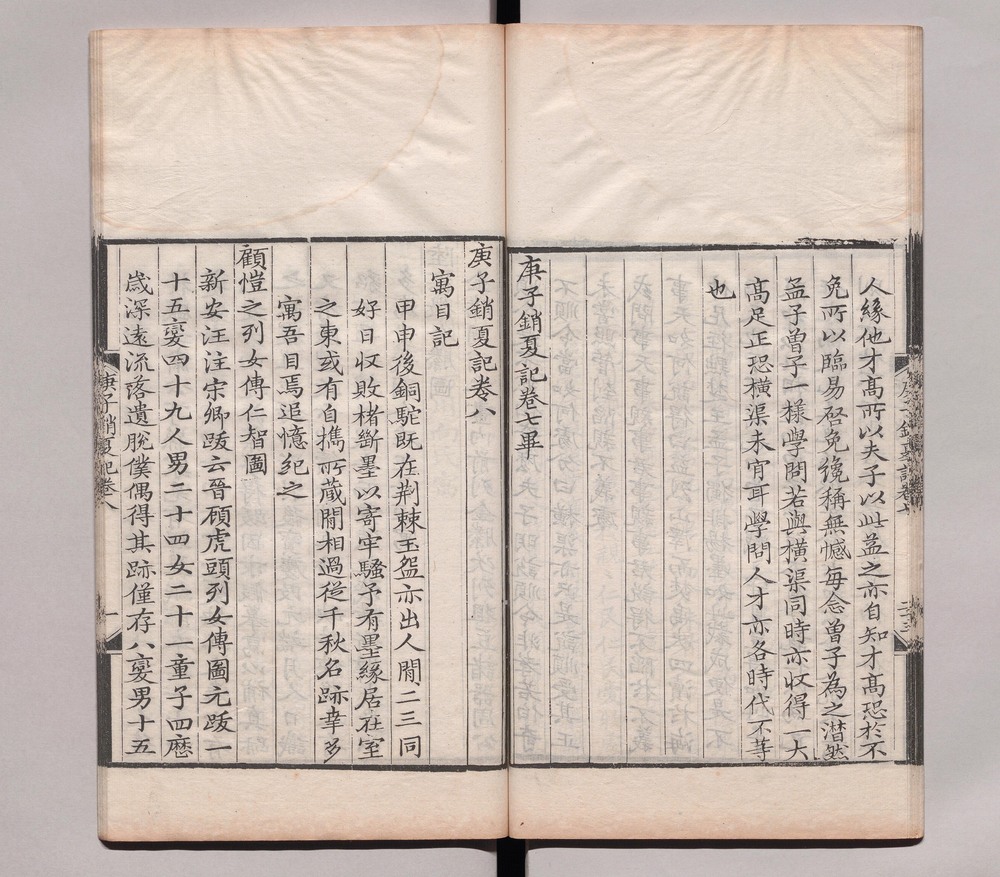 人緣他才高所以夫子以此益之亦自知才高恐於不
免所以臨易啓免纔稱無憾每念曽子為之潸然
孟子曽子一樣學問若與橫渠同時亦收得一大
高足正恐橫渠未肎耳學問人才亦各時代不等
也
庚子銷夏記卷七畢
庚子銷夏記卷八
寓目記
甲申後銅駝既在荆棘玉盌亦出人間二三同
好日收敗楮斷墨以寄牢騷予有墨緣居在室
之東或有自擕所蔵閒相過從千秋名跡幸多
寓吾目焉追憶紀之
顧愷之列女傳仁智圖
新安汪注宋卿跋云晉頋虎頭列女傳圖元跋一
十五變四十九人男二十四女二十一童子四歴
歲深遠流落遺脫僕偶得其跡僅存八變男十五
庚子銷夏記卷八
一